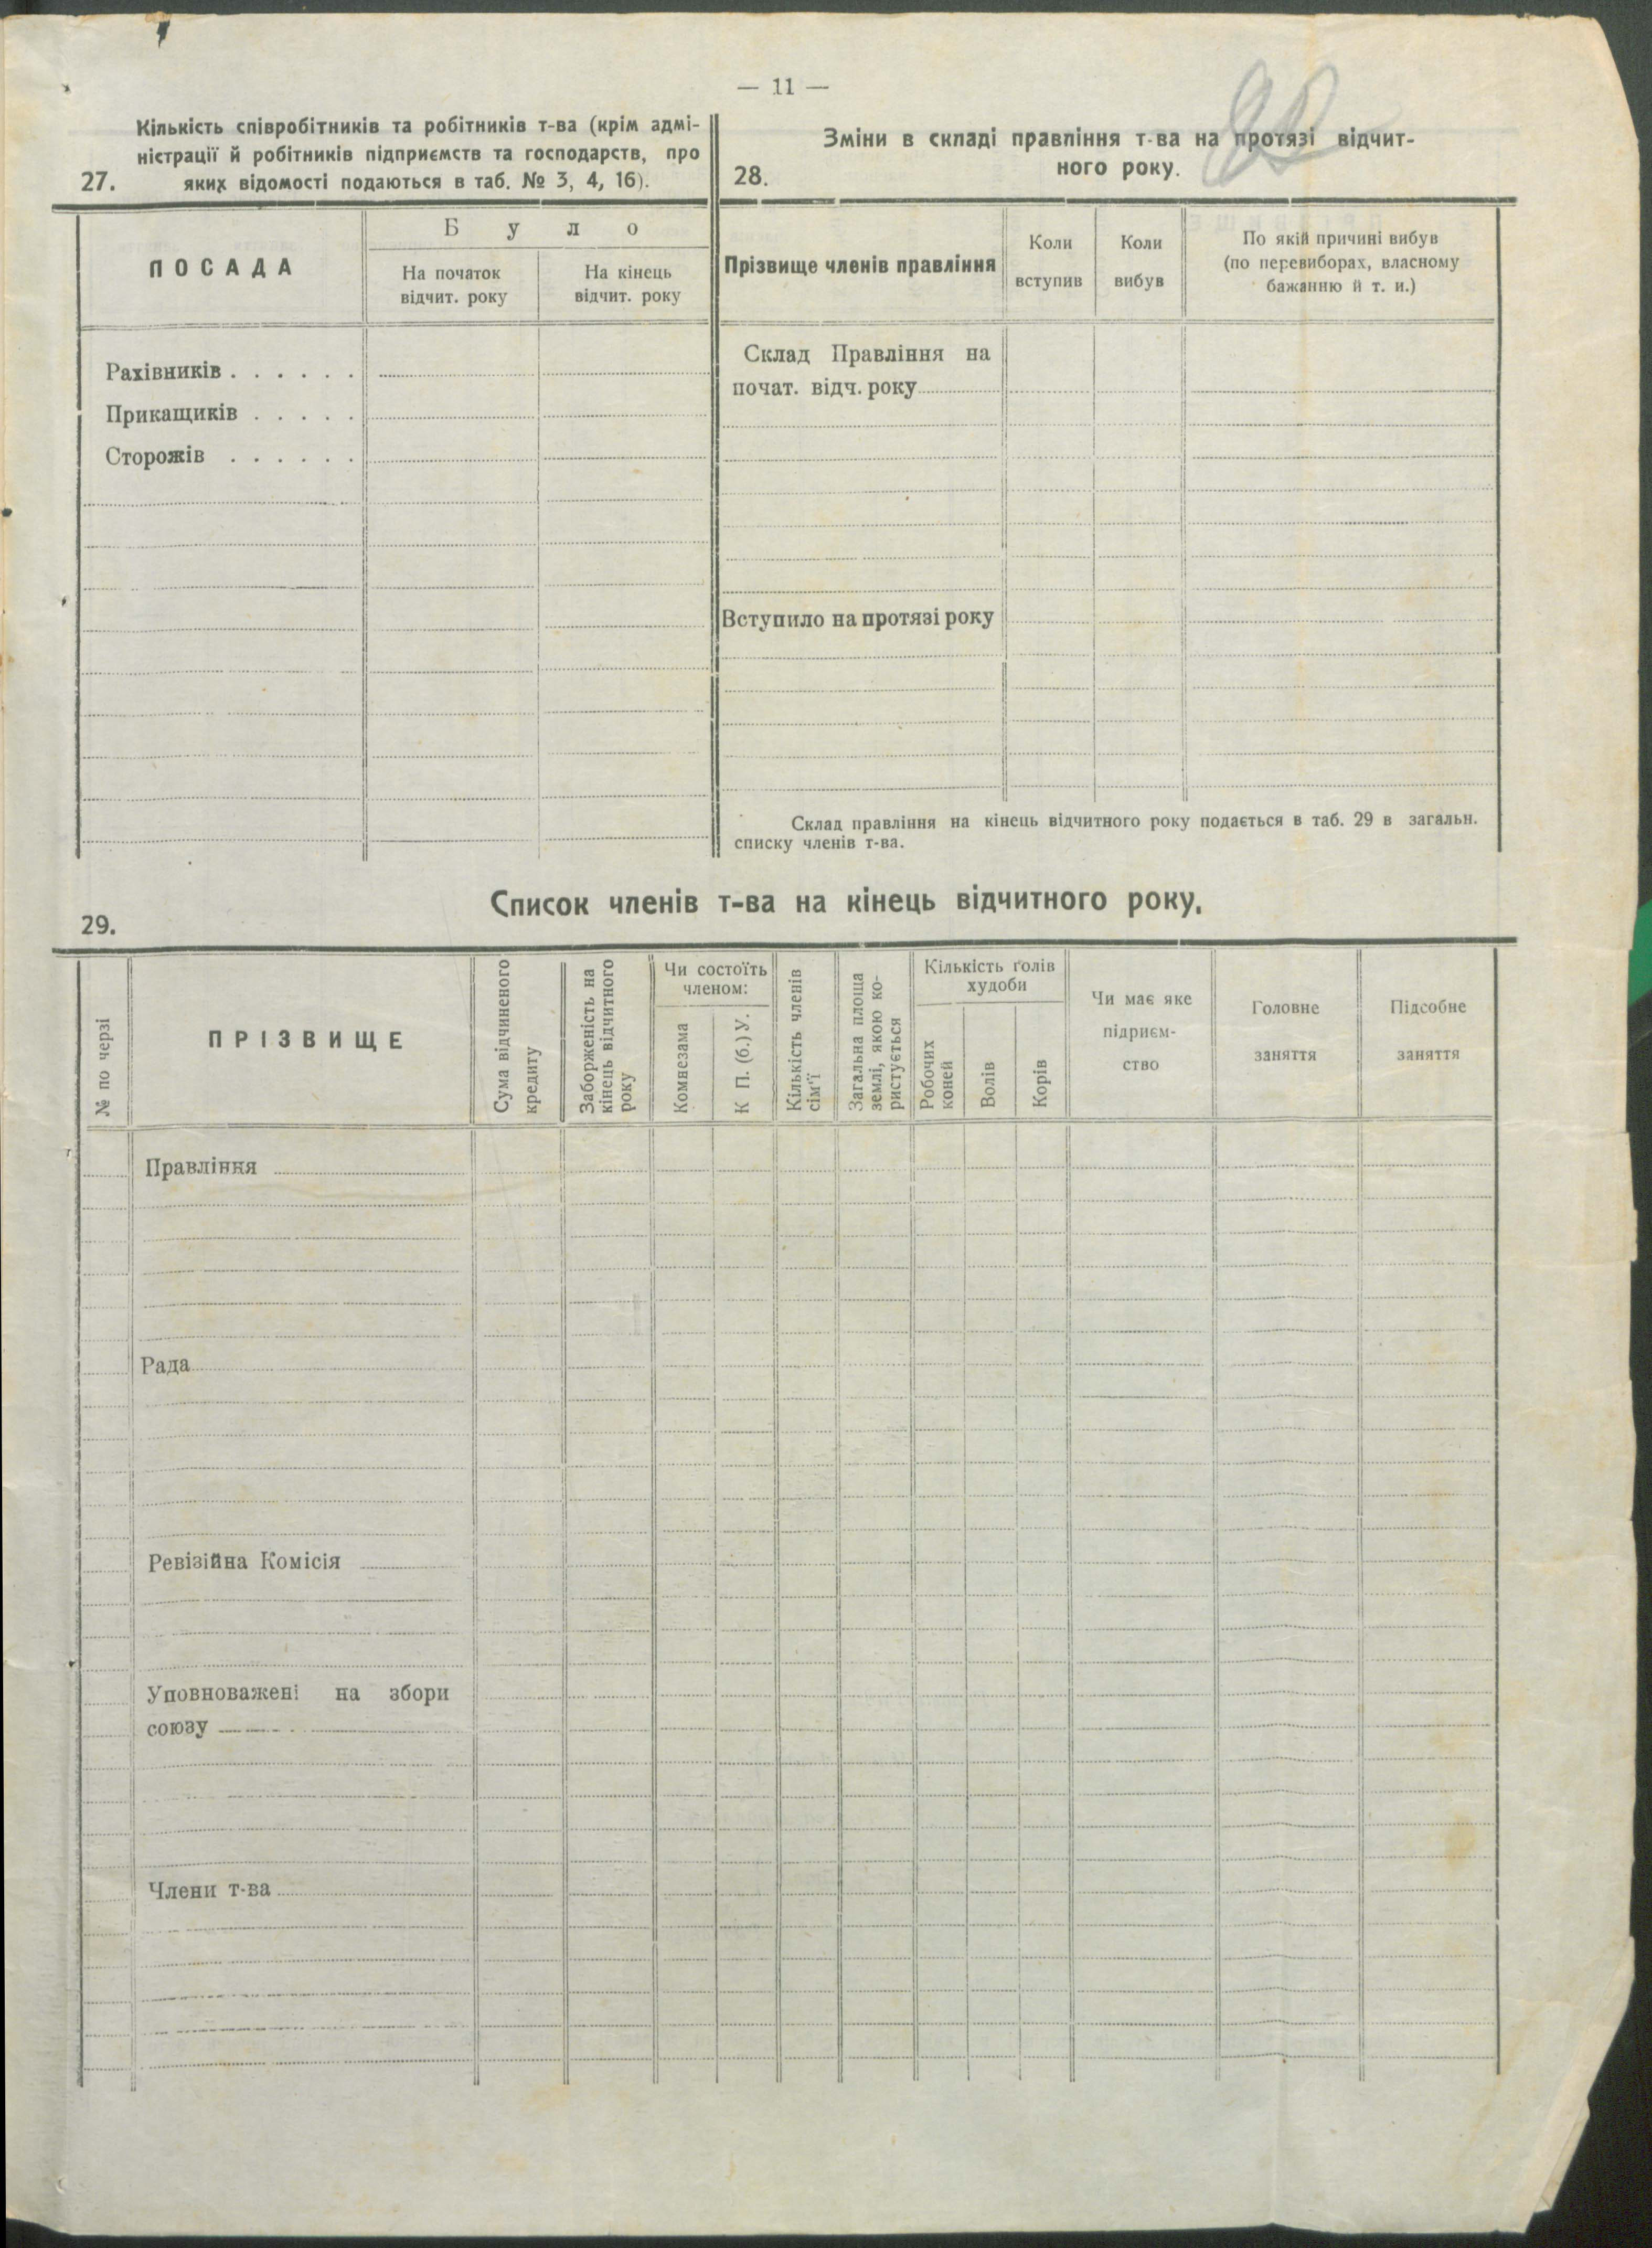 — 11 —
27.
Кількість співробітників та робітників т-ва (крім адмі-
ністрації й робітників підприємств та господарств, про
яких відомості подаються в таб. № 3, 4, 16).
ПОСАДА
Було
На початок
відчит. року
На кінець
відчит. року
Рахівників . . . . . .
Прикащиків . . . . .
Сторожів . . . . . .
28.
Зміни в складі правління т-ва на протязі відчит-
ного року.
Прізвище членів правління
Коли
вступив
Коли
вибув
По якій причині вибув
(по перевиборах, власному
бажанню й т. и.)
Склад Правління на
почат. відч. року
Вступило на протязі року
Склад правління на кінець відчитного року подається в таб. 29 в загальн.
списку членів т-ва.
29.
Список членів т-ва на кінець відчитного року.
№ по черзі
ПРІЗВИЩЕ
Сума відчиненого
кредиту
Заборженість на
кінець відчитного
року
Чи состоїть
членом:
Комнезама
К П. (б.) У.
Кількість членів
сім'ї
Загальна площа
землі, якою ко-
ристується
Кількість голів
худоби
Робочих
коней
Волів
Корів
Чи має яке
підприєм-
ство
Головне
заняття
Підсобне
заняття
Правління
Рада
Ревізійна Комісія
Уповноважені на збори
союзу
Члени т-ва